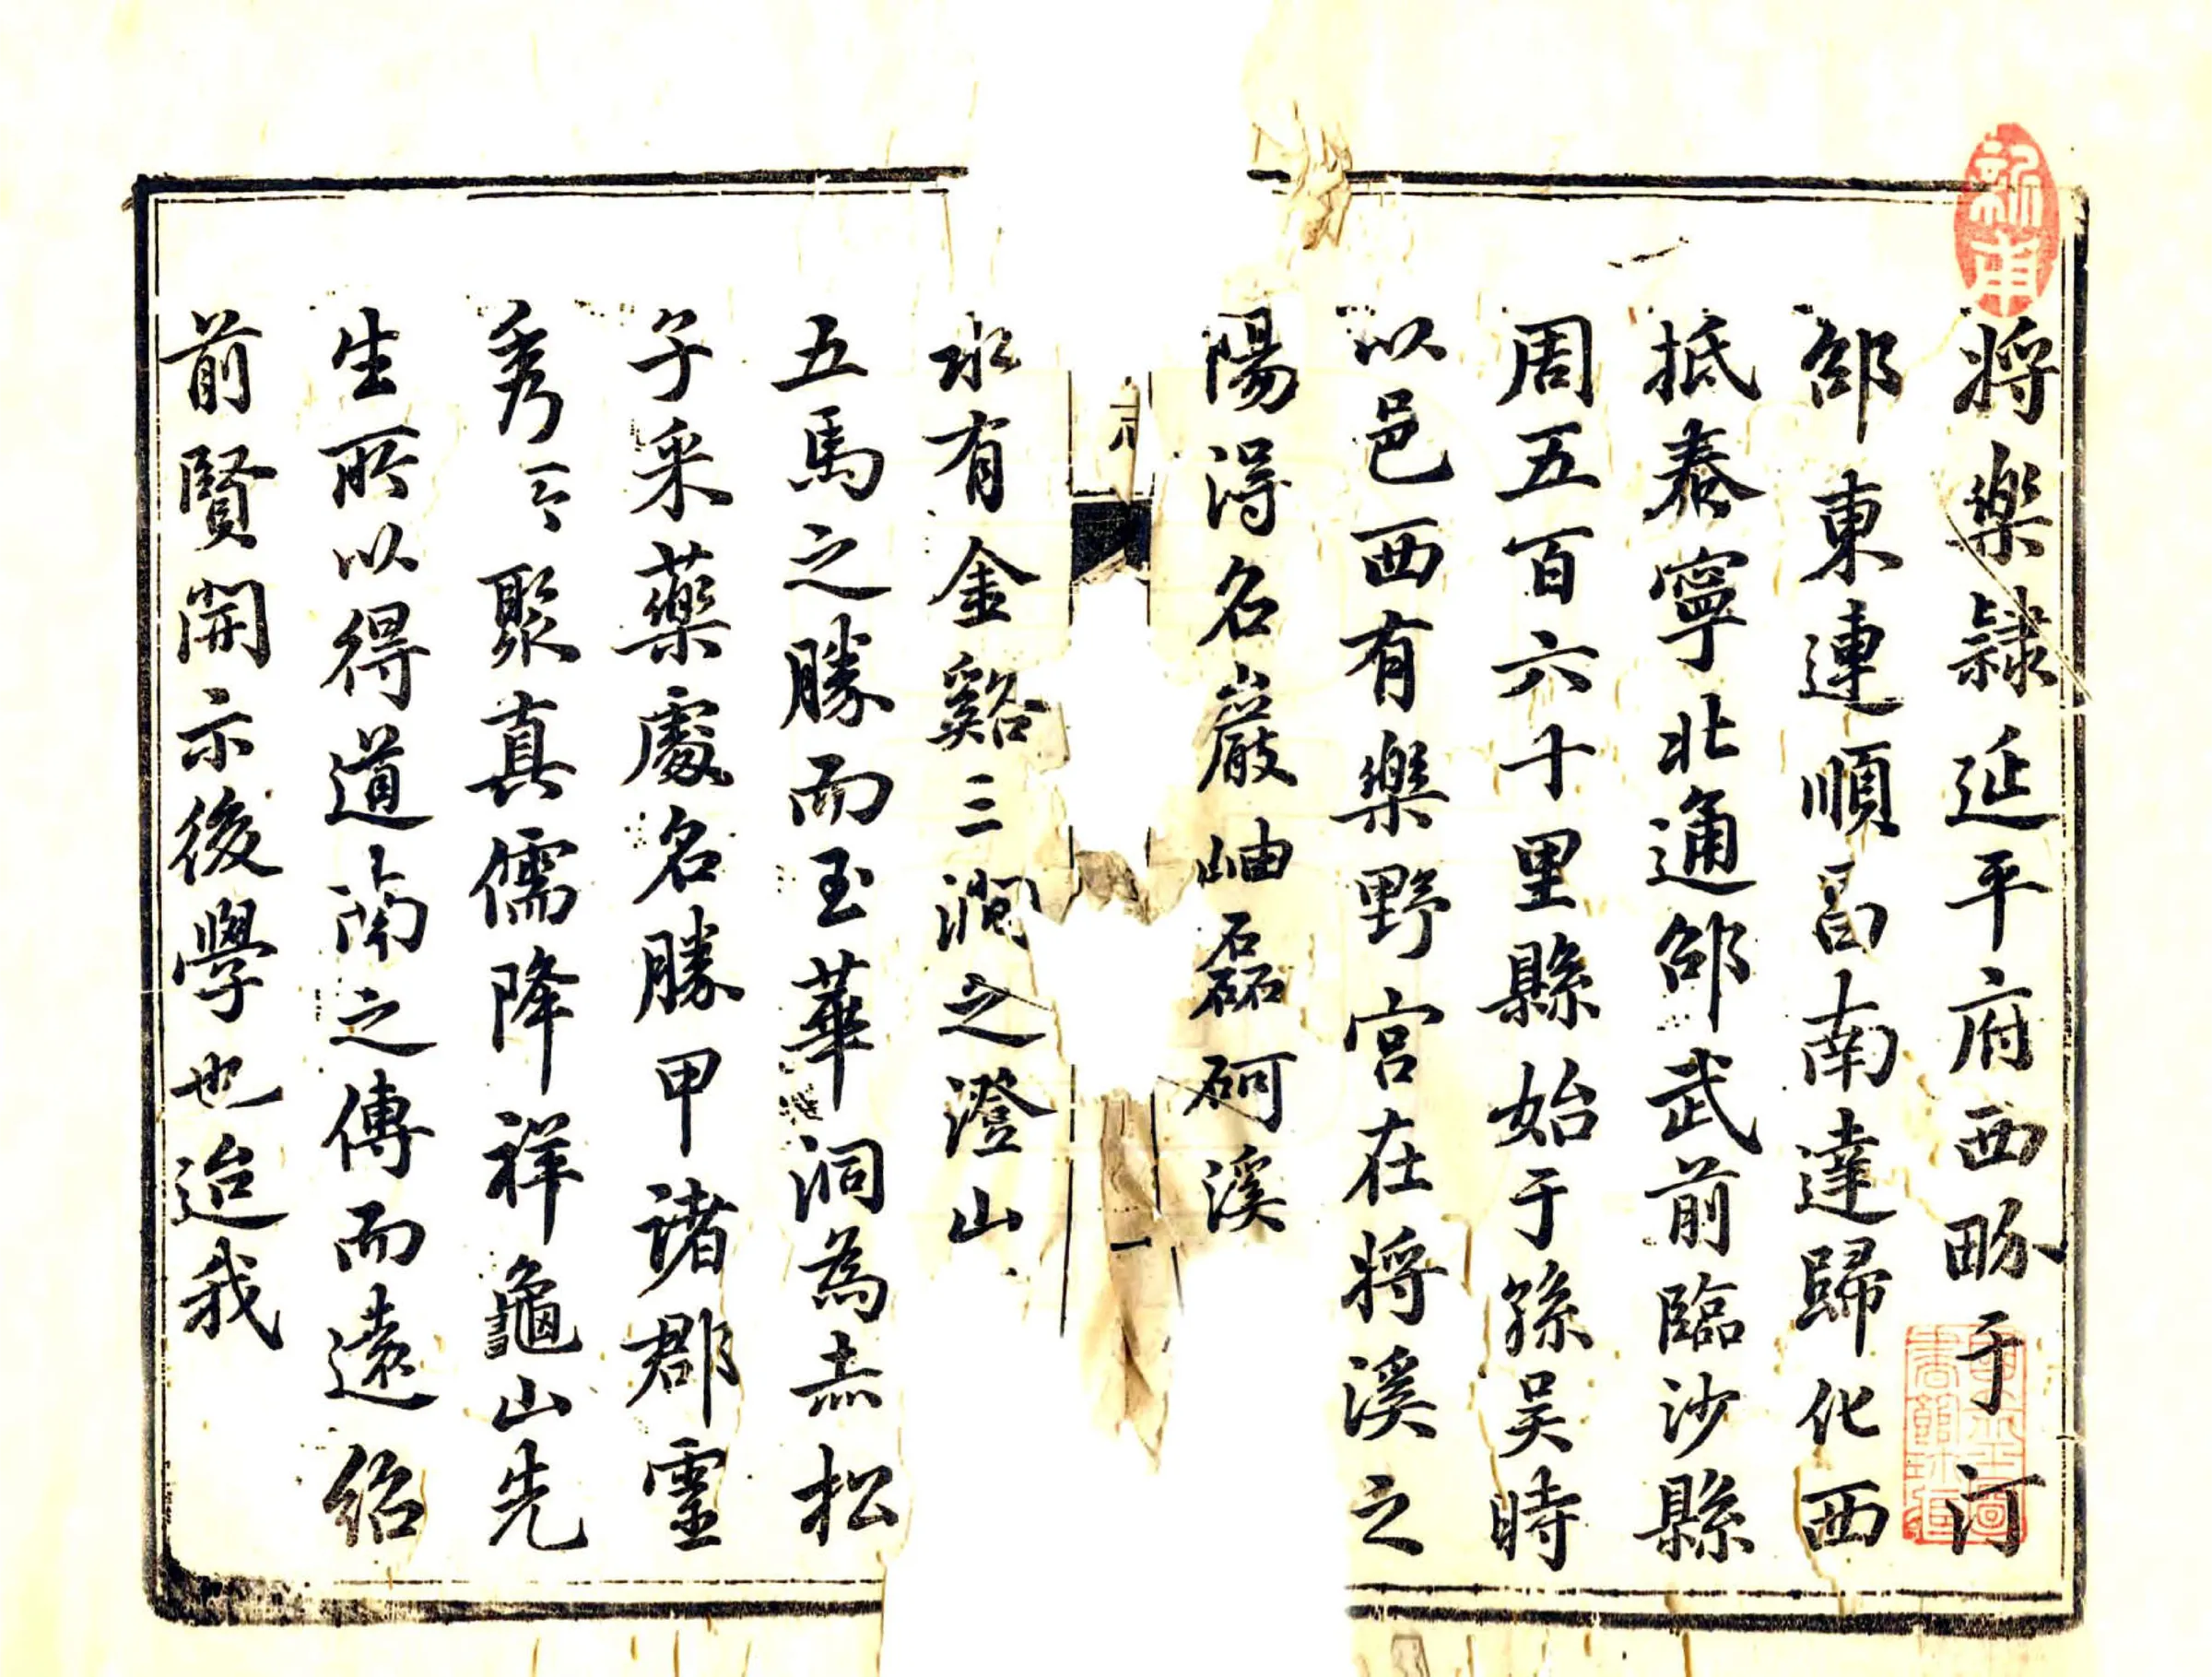 將樂隸延平府西畛于汀
邵東連順昌南達歸化西
抵泰寧北通邵武前臨沙縣
周五百六十里縣始于孫吳時
以邑西有樂野宮在將溪之
陽得名巖岫磊砢溪
一
水有金谿三澗之澄山
五馬之勝而玉華洞為赤松
子采藥處名勝甲諸郡靈
秀聚真儒降祥龜山先
生所以得道南之傳而遠紹
前賢開示後學也迨我